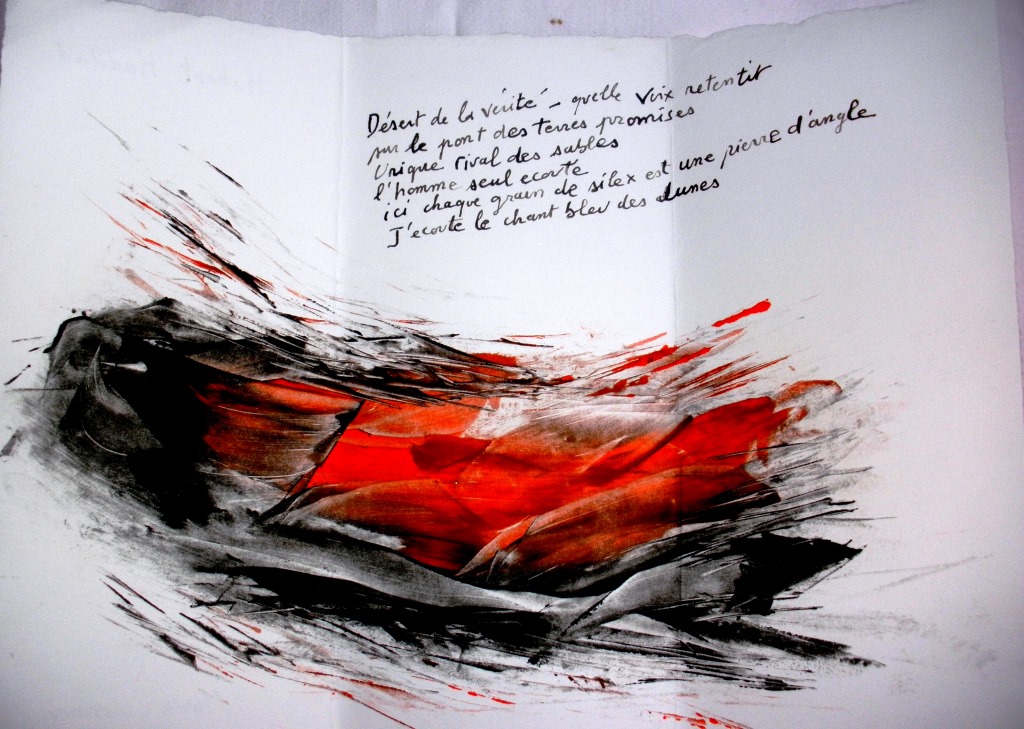 Désert de la vérité – quelle voix retentit
sur le pont des terres promises
Unique rival des sables
l'homme seul ecoute
ici chaque grain de silex est une pierre d'angle
J'ecoute le chant bleu des dunes